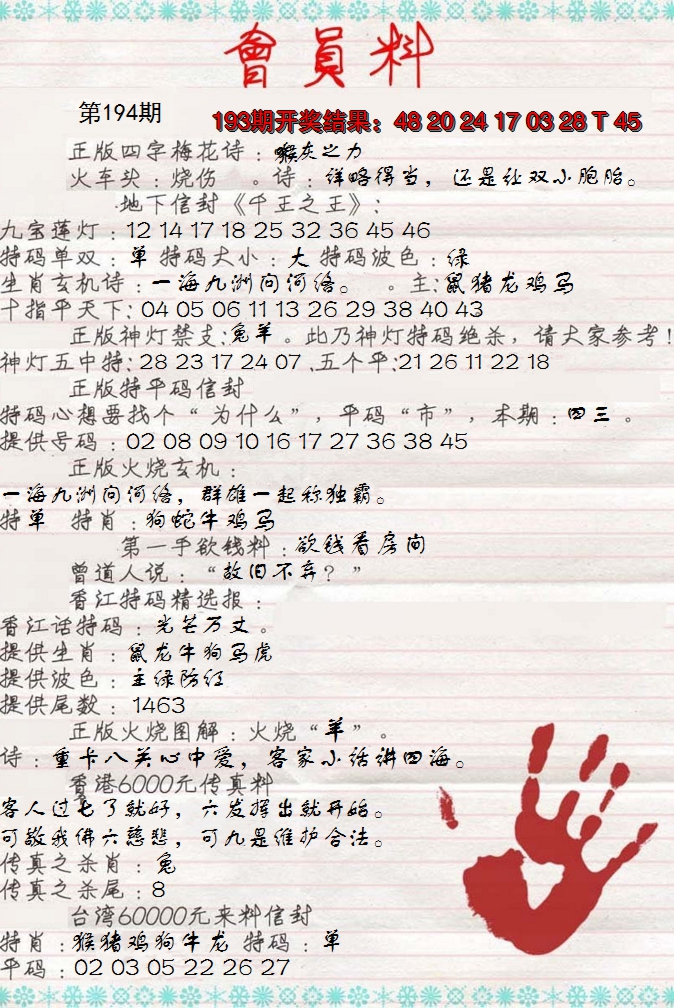 會員料
第194期
193期开奖结果：48 20 24 17 03 28 T 45
正版四字梅花诗：猴灰之力
火车头：烧伤 。诗：详略得当，还是生双小胞胎。
地下信封《千王之王》：
九宝莲灯：12 14 17 18 25 32 36 45 46
特码单双：单 特码大小：大 特码波色：绿
生肖玄机诗：一海九洲问河洛。 。主：鼠猪龙鸡马
十指平天下：04 05 06 11 13 26 29 38 40 43
正版神灯禁支：兔羊。此乃神灯特码绝杀，请大家参考！
神灯五中特：28 23 17 24 07 .五个平：21 26 11 22 18
正版特平码信封
特码心想要找个“为什么”，平码“市”，本期：四三。
提供号码：02 08 09 10 16 17 27 36 38 45
正版火烧玄机：
一海九洲问河洛，群雄一起称独霸。
特单 特肖：狗蛇牛鸡马
第一手欲钱料：欲钱看房间
曾道人说：“故旧不弃？”
香江特码精选报：
香江话特码：光芒万丈。
提供生肖：鼠龙牛狗马虎
提供波色：主绿防红
提供尾数：1463
正版火烧图解：火烧“羊”。
诗：重卡八关心中爱，客家小话讲四海。
香港6000元传真料
客人过七了就好，六发挥出就开始。
可敬我佛六慈悲，可九是维护合法。
传真之杀肖：兔
传真之杀尾：8
台湾60000元来料信封
特肖：猴猪鸡狗牛龙 特码：单
平码：02 03 05 22 26 27